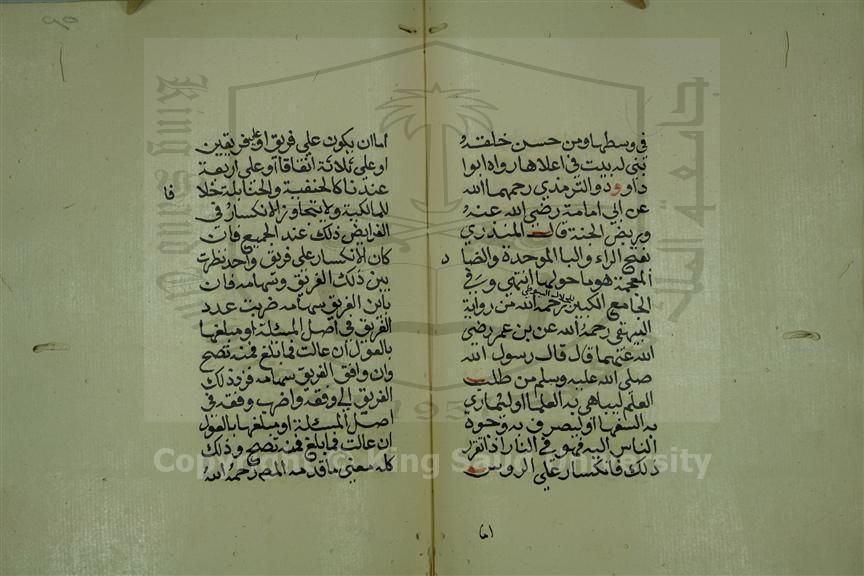 في وسطها ومن حسن خلقه و
بنى له بيت في اعلاها رواه ابوا
داوود والترمذي رحمهما الله
عن ابي امامة رضي الله عنه
وربض الجنة قال المنذري
بفتح الراء والبا الموحدة والضا
د
المعجمة هو ما حولها انتهى وفي
الجامع الكبير رحمه الله من رواية
البيهقي رحمه الله عن بن عمر رضي
الله عنهما قال قال رسول الله
صلى الله عليه وسلم من طلب
العلم ليباهي به العلما او ليماري
به السفها او ليصرف به وجوه
الناس اليه فهو في النار اذا تقرر
ذلك فانكسار على الروس
اما ان يكون على فريق او على فريقين
او على ثلاثة اتفاقا او على اربعة
عندنا كالحنفية والحنابلة خلا
فا
للمالكية ولا يتجاوز الانكسار في
الفرايض ذلك عند الجميع فان
كان الانكسار على فريق واحد نظرت
بين ذلك الفريق وسهامه فان
باين الفريق سهامه ضربت عدد
الفريق في اصل المسئلة او مبلغها
بالعول ان عالت فما بلغ فمنه تصح
وان وافق الفريق سهامه فرد ذلك
الفريق الى وفقه واضرب وفقه في
اصل المسئلة او مبلغها بالعول
ان عالت فما بلغ فمنه تصح وذلك
كله معنى ما قدمه المص رحمه الله
King Saud University
جامعة الملك سعود
195
Copyright © King Saud University